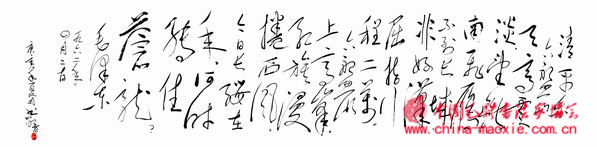 清平乐
六盘山
天高云
淡望断
南飞雁
不到长城
非好汉
屈指行
程二万
六盘山
上高峰
红旗漫
捲西风
今日长缨在
手何时
缚住
苍龙
毛泽东
一九六一年
www.china-maoxie.com.cn